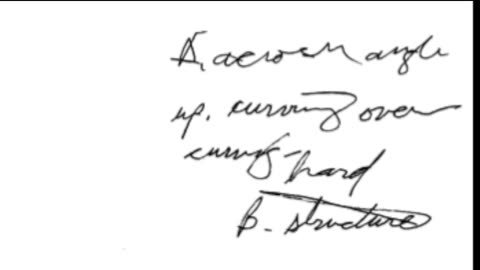 A, across angle
up. curving over
curving-hard
B. structure